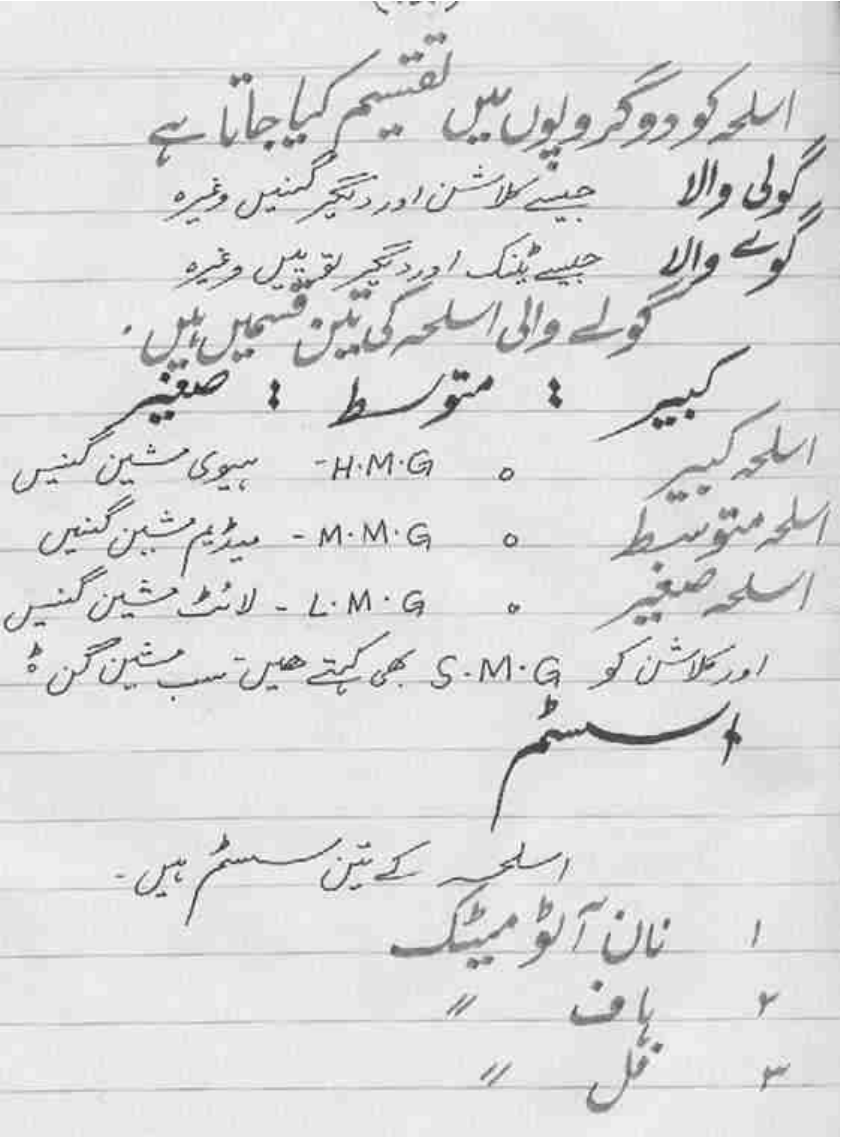 اسلحہ کو دو گروپوں میں تقسیم کیا جاتا ہے
گولی والا جیسے کلاشن اور دیگر گنیں وغیرہ
گولے والا جیسے ٹینک اور دیگر توپیں وغیرہ
گولے والی اسلحہ کی تین قسمیں ہیں۔
کبیر : متوسط : صغیر
اسلحہ کبیر ه H.M.G - ہیوی مشین گنیں
اسلحہ متوسط ه M.M.G - میڈیم مشین گنیں
اسلحہ صغیر ه L.M.G - لائٹ مشین گنیں
اور کلاشن کو S.M.G بھی کہتے ھیں۔ سب مشین گن
سسٹم
اسلحہ کے تین سسٹم ہیں۔
۱ نان آٹو میٹک
۲ ہاف 〃
۳ فل 〃